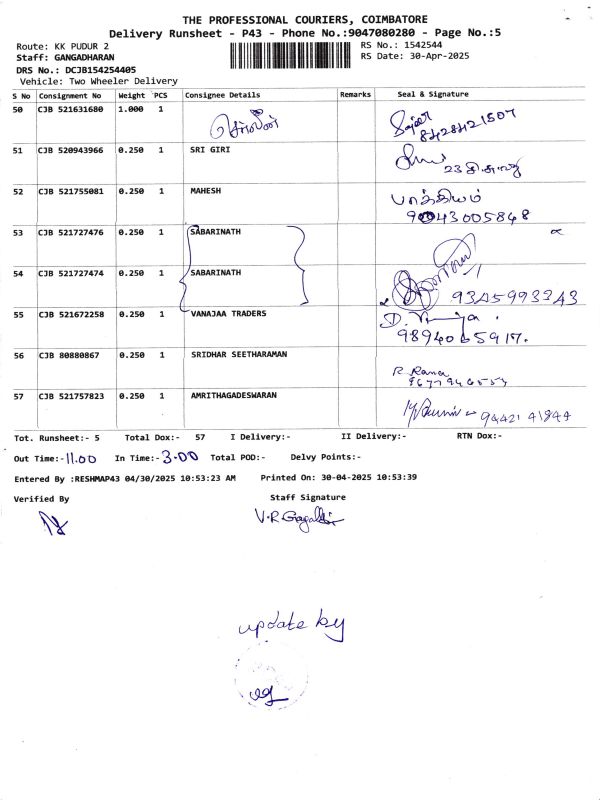 THE PROFESSIONAL COURIERS, COIMBATORE
Delivery Runsheet - P43 - Phone No.:9047080280 - Page No.:5
Route: KK PUDUR 2 RS No.: 1542544
Staff: GANGADHARAN RS Date: 30-Apr-2025
DRS No.: DCJB154254405
Vehicle: Two Wheeler Delivery
S No Consignment No Weight PCS Consignee Details Remarks Seal & Signature
50 CJB 521631680 1.000 1 செல்வின்
8428421507
51 CJB 520943966 0.250 1 SRI GIRI
52 CJB 521755081 0.250 1 MAHESH பாக்கியம்
9043005848
53 CJB 521727476 0.250 1 SABARINATH
54 CJB 521727474 0.250 1 SABARINATH
9345993343
55 CJB 521672258 0.250 1 VANAJAA TRADERS
56 CJB 80880867 0.250 1 SRIDHAR SEETHARAMAN
57 CJB 521757823 0.250 1 AMRITHAGADESWARAN
Tot. Runsheet:- 5 Total Dox:- 57 I Delivery:- II Delivery:- RTN Dox:-
Out Time:- 11.00 In Time:- 3.00 Total POD:- Delvy Points:-
Entered By :RESHMAP43 04/30/2025 10:53:23 AM Printed On: 30-04-2025 10:53:39
Verified By Staff Signature
update by